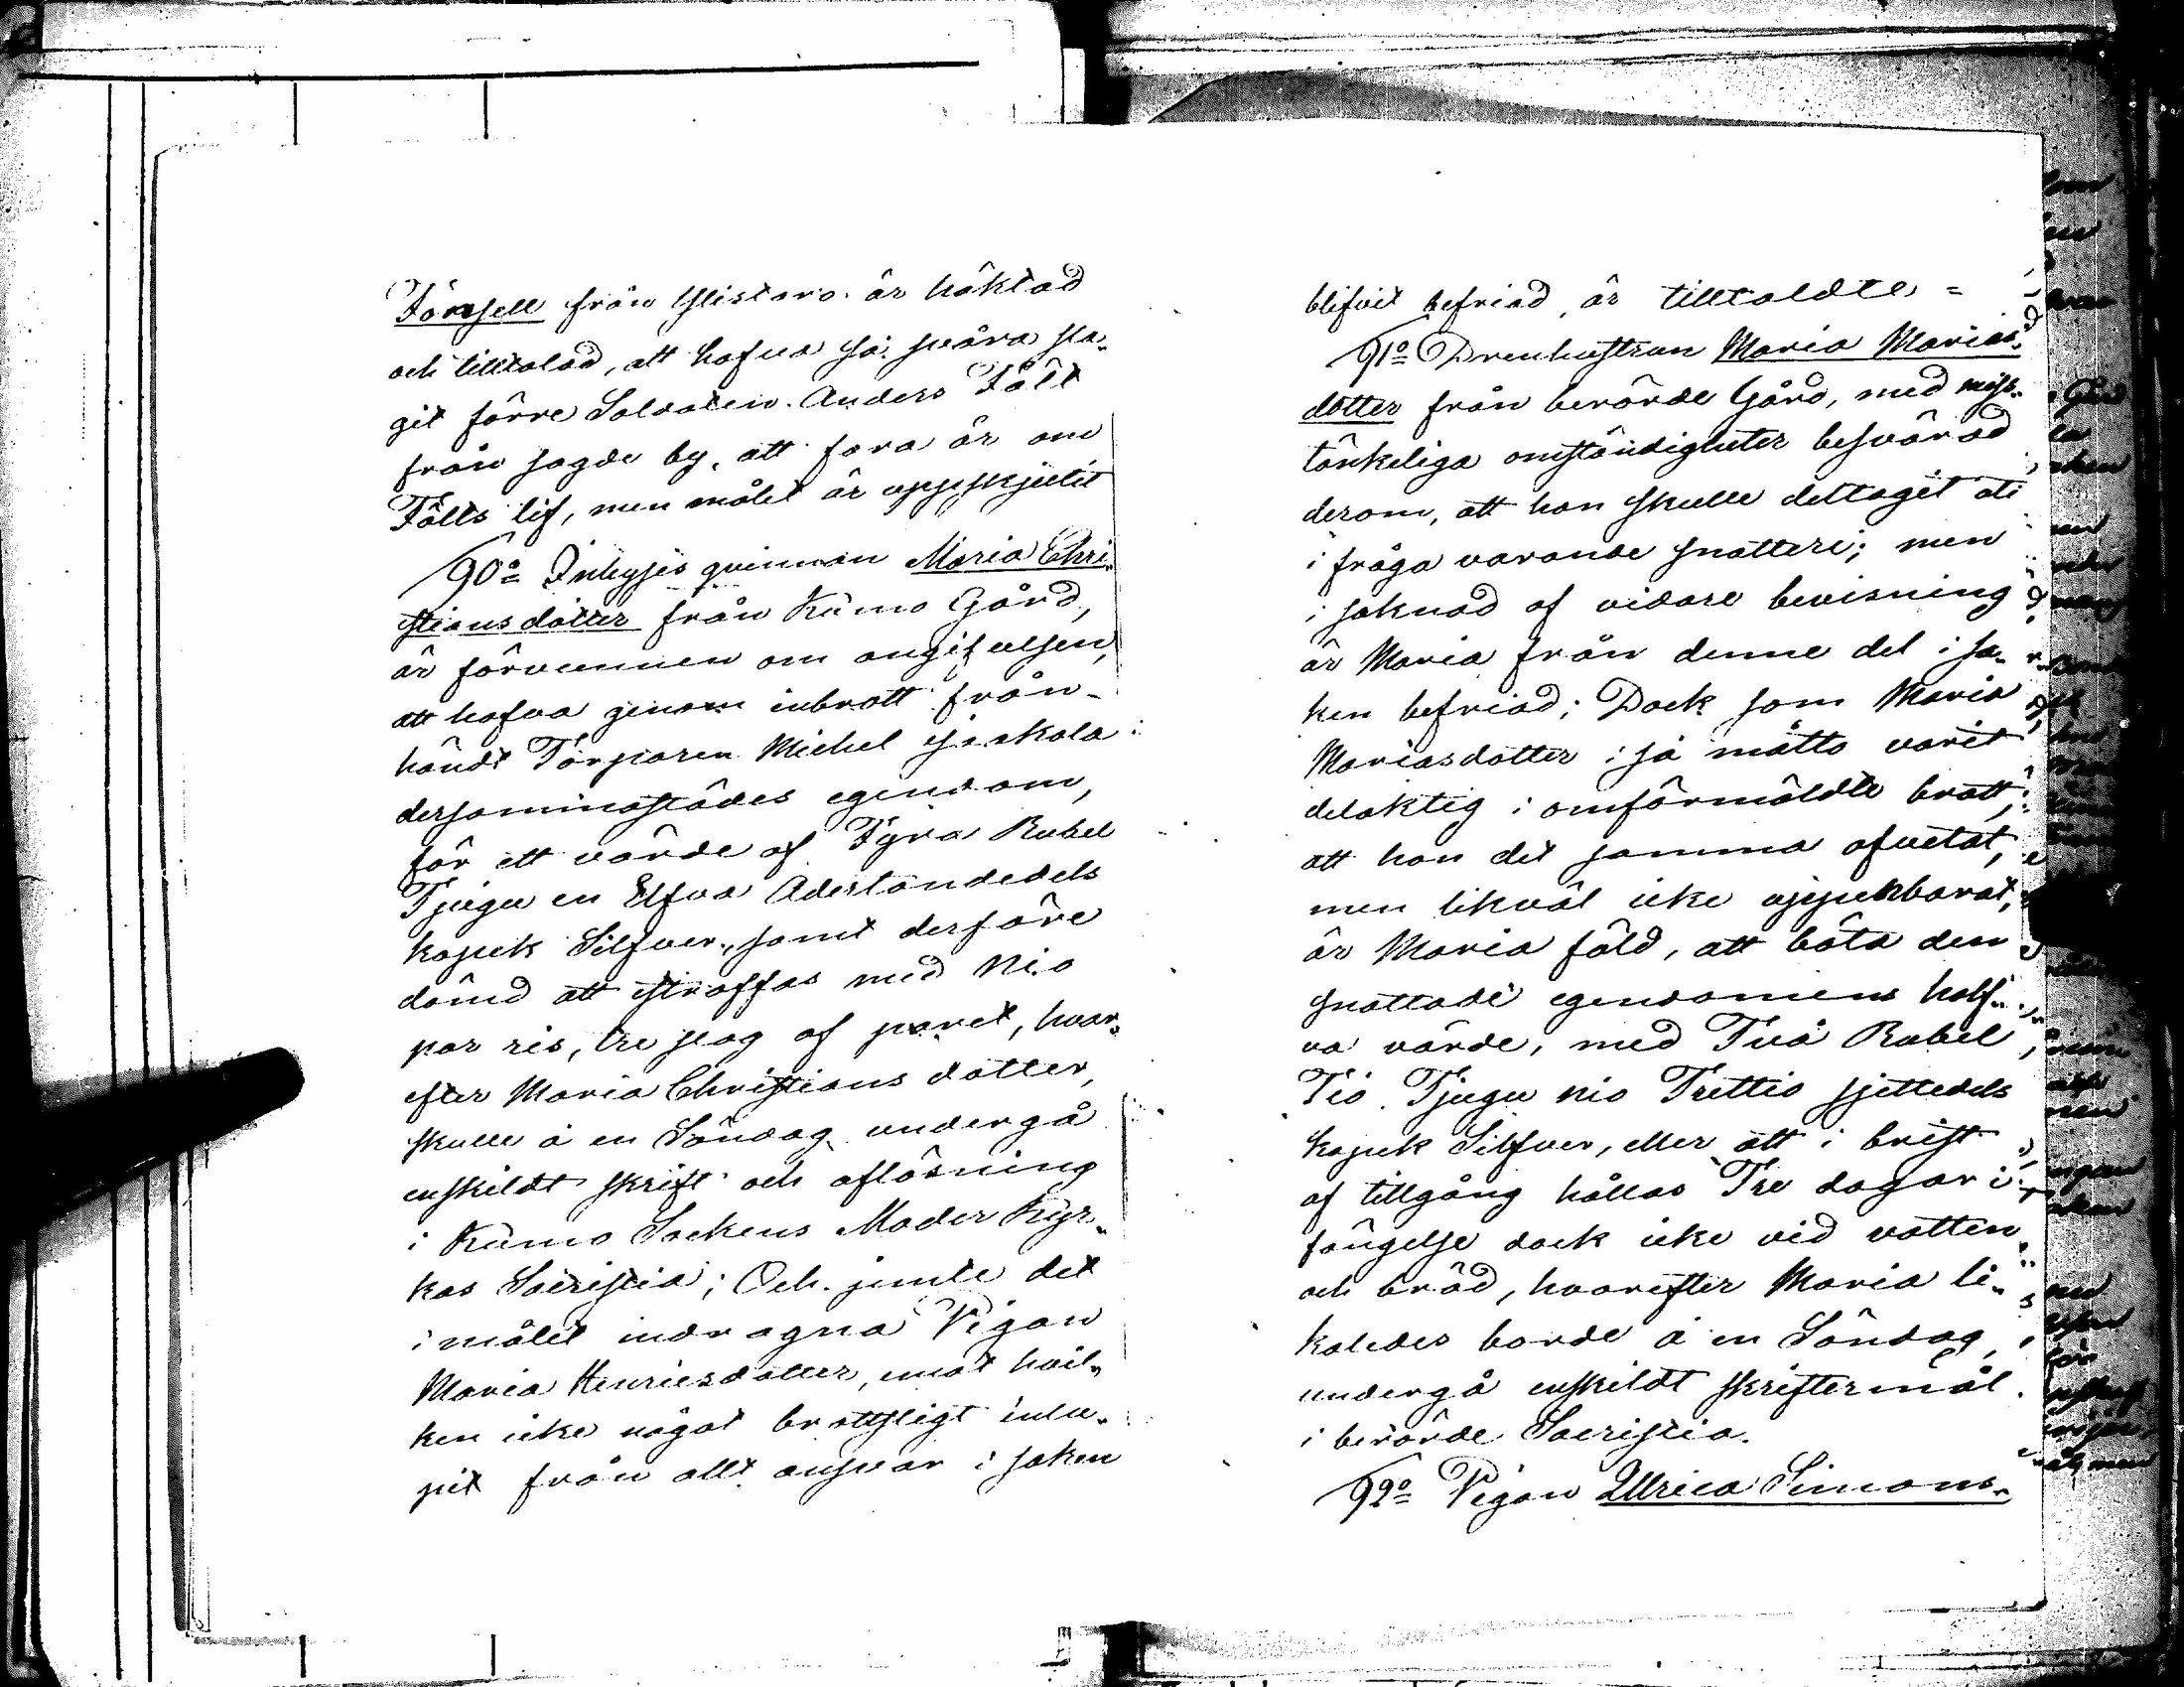 Törnsell från Ylistaro är häktad
och tilltalad, att hafva så svåra sla-
git förre Soldaten Anders Fält
från sagde by, att fara är om
Fälts lif, men målet är uppskjutit
90o Inhyses qvinnan Maria Chri-
stiansdotter från Kumo Gård,
är förvunnen om angifvelsen,
att hafva genom inbrott från-
händt Torparen Michel Isaskala
dersammastädes egendom,
för ett värde af Fyra Rubel
Tjugu en Elfva Adertondedels
kopek Silfver, samt derföre
dömd att straffas med Nio
par ris, tre slag af paret, hvar-
efter Maria Christiansdotter,
skulle å en Söndag undergå
enskildt skrift och aflösning
i Kumo Sockens Moder Kyr-
kas Sacristia; Och jemte det
i målet indragna Pigan
Maria Henricsdotter, emot hvil-
ken icke något brottsligt inlu-
pit från allt ansvar i saken
blifvit befriad, är tilltaldte =
91o Drenhustrun Maria Marias-
dotter från berörde Gård, med miss-
tänkeliga omständigheter besvärad
derom, att hon skulle deltagit uti
i fråga varande snatteri; men
i saknad af vidare bevisning
är Maria från denne del i sa-
ken befriad; Dock som Maria
Mariasdotter i så måtto varit
delaktig i omförmäldte brott,
att hon det samma afvetat,
men likväl icke uppenbarat,
är Maria fäld, att böta den
snattade egendomens half-
va värde, med Två Rubel
Tio Tjugu nio Trettio sjettedels
kopek Silfver, eller att i brist
af tillgång hållas Tre dagar i
fängelse dock icke vid vatten
och bröd, hvarefter Maria li-
kaledes borde å en Söndag,
undergå enskildt skriftermål
i berörde Sacristia.
92o Pigan Ullrica Simons-